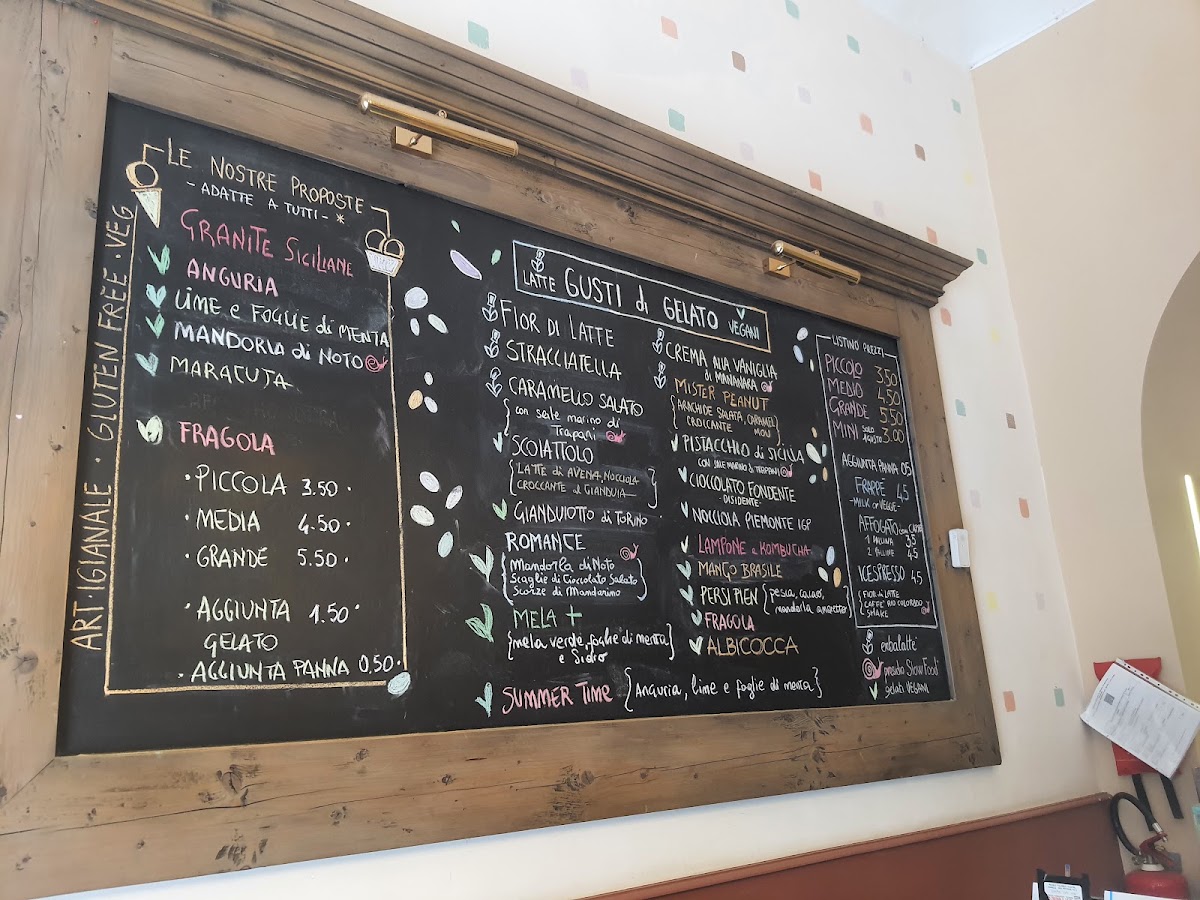 ARTIGIANALE · GLUTEN FREE · VEG
LE NOSTRE PROPOSTE
- ADATTE A TUTTI - *
GRANITE SICILIANE
ANGURIA
LIME e FOGLIE di MENTA
MANDORLA di NOTO
MARACUJA
FRAGOLA
· PICCOLA 3.50 ·
· MEDIA 4.50 ·
· GRANDE 5.50 ·
· AGGIUNTA 1.50 ·
GELATO
· AGGIUNTA PANNA 0.50 ·
LATTE GUSTI di GELATO VEGANI
FIOR DI LATTE
STRACCIATELLA
CARAMELLO SALATO
{con sale marino di
Trapani
SCOIATTOLO
{LATTE di AVENA, NOCCIOLA
CROCCANTE al GIANDUIA}
GIANDUIOTTO di TORINO
ROMANCE
{Mandorla di Noto
Scaglie di Cioccolato Salato
Scorze di Mandarino}
MELA +
{mela verde, foglie di menta
e Sidro}
SUMMER TIME {Anguria, lime e foglie di menta}
CREMA ALLA VANIGLIA
di MANANARA
MISTER PEANUT
{ARACHIDE SALATA, CARAMEL
CROCCANTE MOU}
PISTACCHIO di SICILIA
CON SALE MARINO di TRAPANI
CIOCCOLATO FONDENTE
- DISIDENTE -
NOCCIOLA PIEMONTE IGP
LAMPONE e KOMBUCHA
MANGO BRASILE
PERSI PIEN {pesca, cacao,
mandorla, amaretto}
FRAGOLA
ALBICOCCA
LISTINO PREZZI
PICCOLO 3.50
MEDIO 4.50
GRANDE 5.50
MINI SOLO 1 GUSTO 3.00
AGGIUNTA PANNA 05
FRAPPÈ 4,5
- MILK or VEGUE -
AFFOGATO con CAFFÈ
1 PALLINA 3,5
2 PALLINE 4,5
ICESPRESSO 4,5
{FIOR di LATTE
CAFFÈ RIO COLORADO
SHAKE
erbalatte
presidio Slow Food
gelati VEGANI